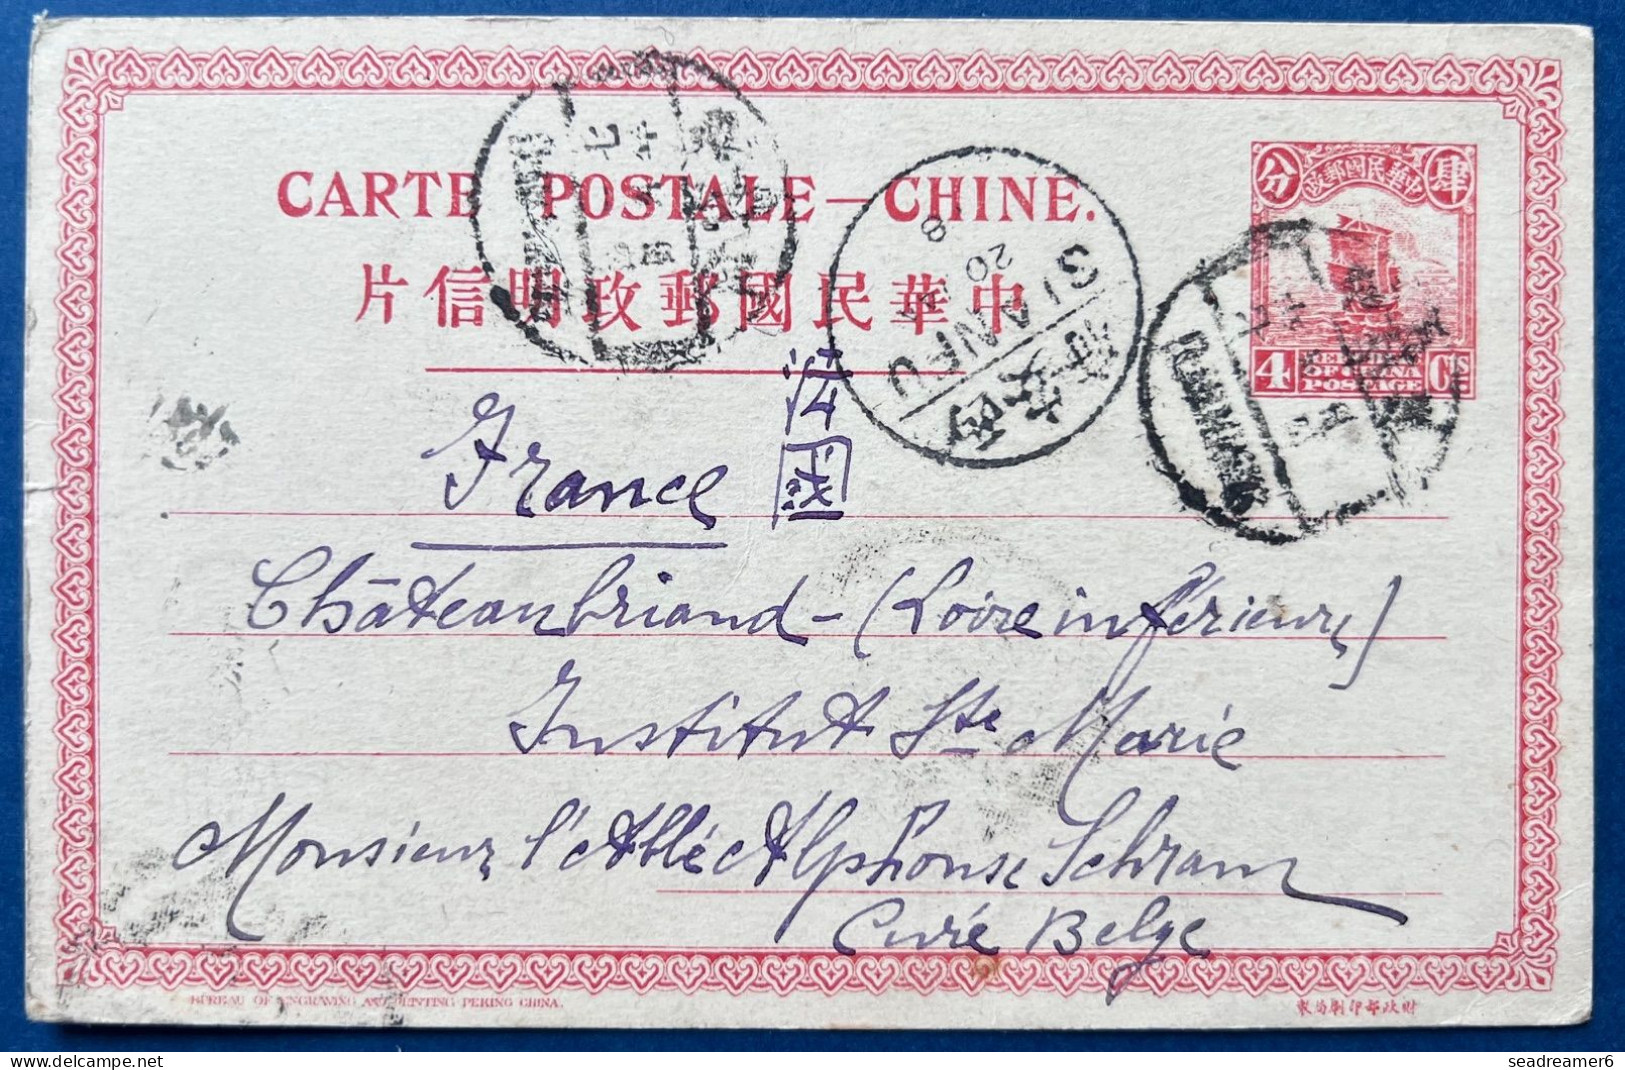 CARTE POSTALE — CHINE.
片信明政郵國民華中
分 政郵國民華中 肆
4 REPUBLIC Cts
OF CHINA
POSTAGE
SIANFU
西安府
20
8
France 法国
Châteaubriand - (Loire inférieure)
Institut Ste Marie
Monsieur l'Abbé Alphonse Schram
Curé Belge
BUREAU OF ENGRAVING AND PRINTING PEKING CHINA.
製局刷印部政財
www.delcampe.net
seadreamer6